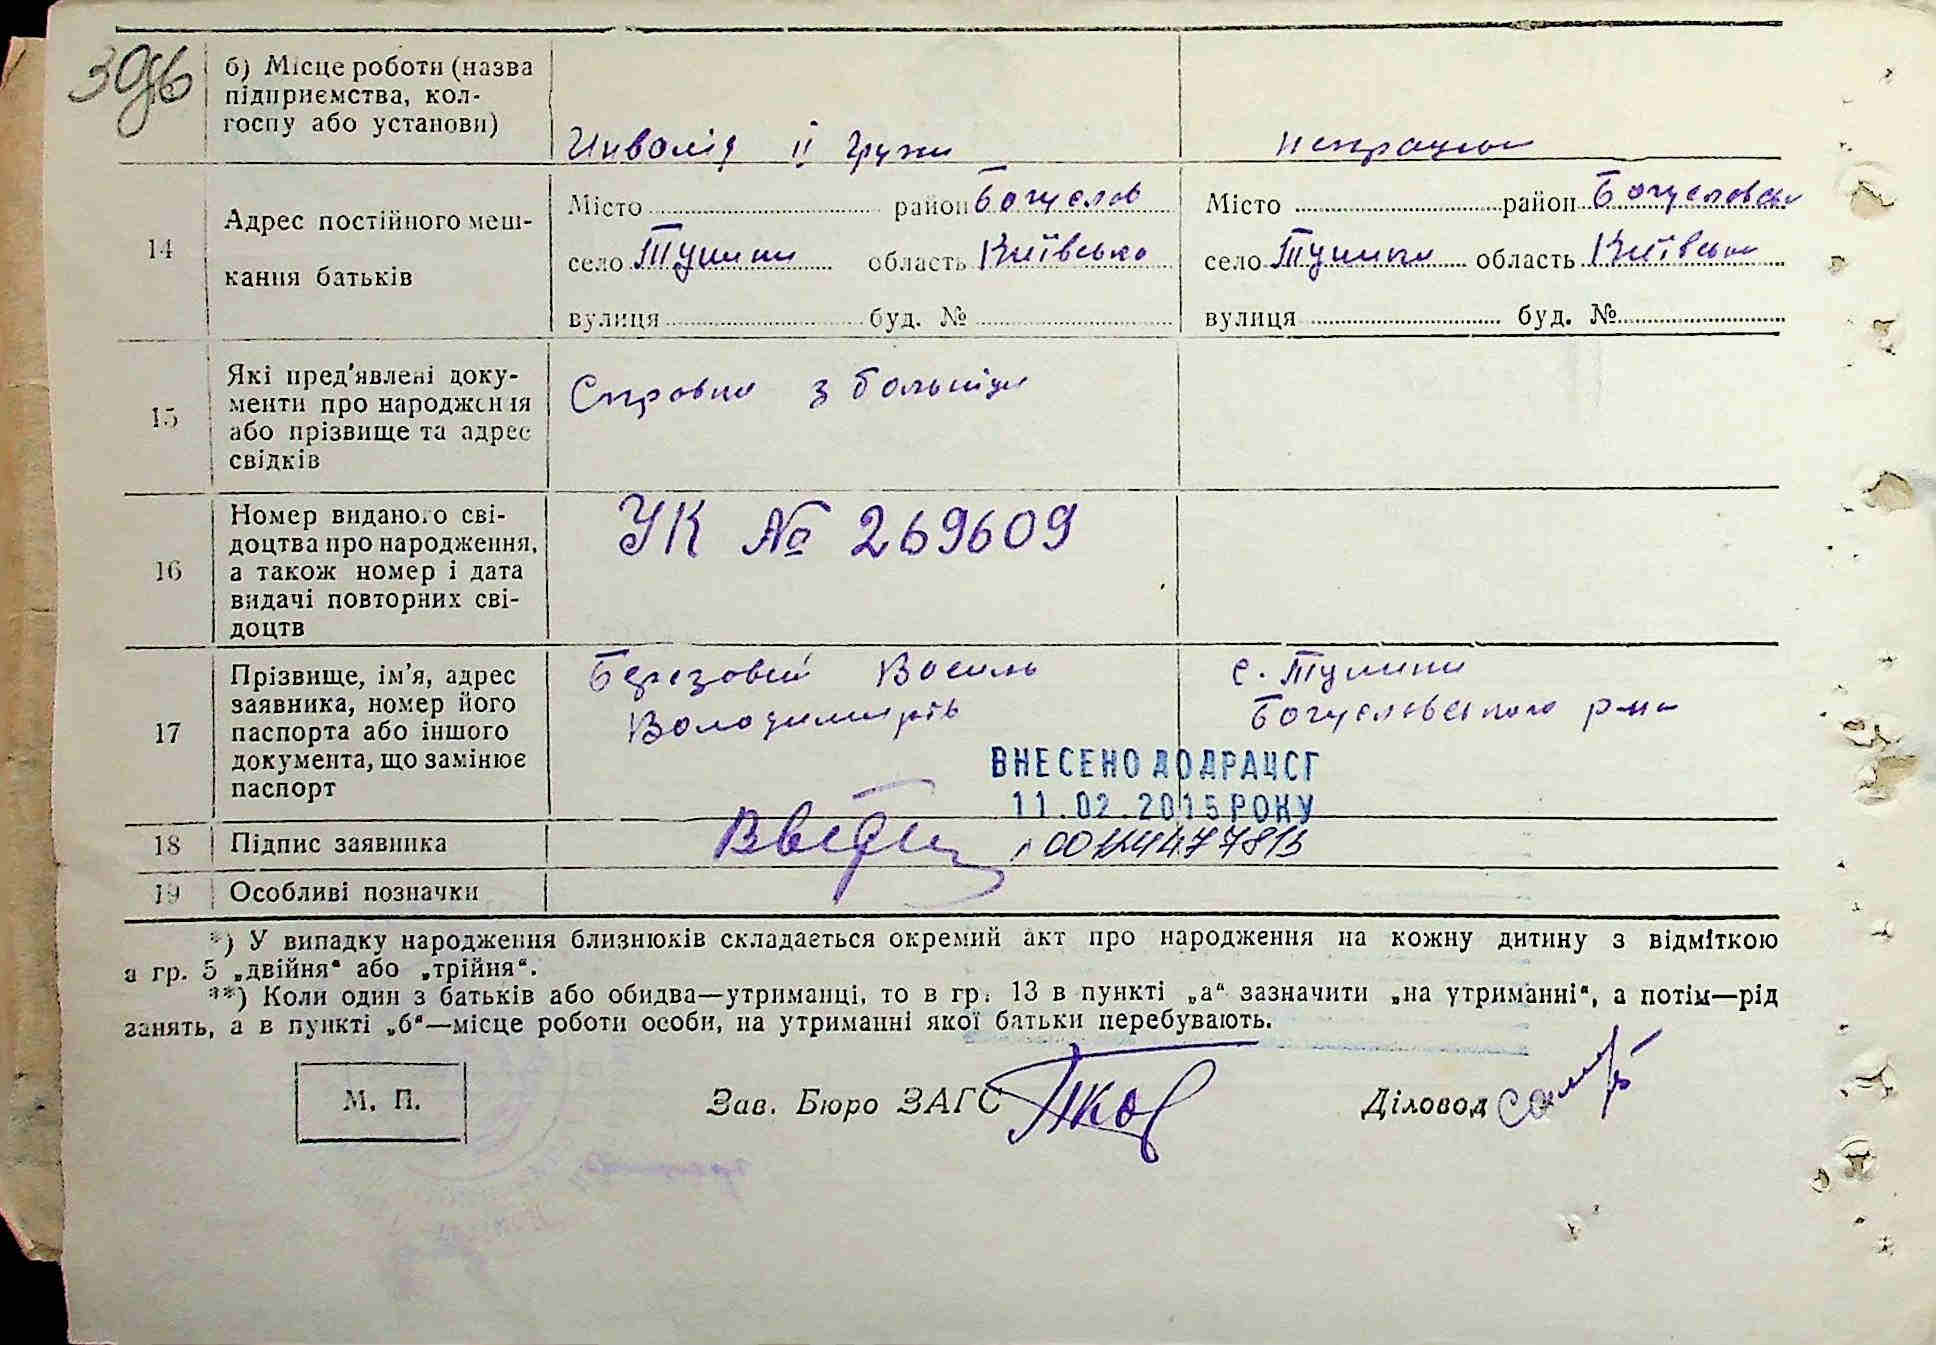 39зв
б) Місце роботи (назва
підприємства, кол-
госпу або установи)
Инвалід ІІ групи
непрацює
14
Адрес постійного меш-
кання батьків
Місто район Богуслав
село Тушини область Київська
вулиця буд. №
Місто район Богуславськ
село Тушини область Київська
вулиця буд. №
15
Які пред'явлені доку-
менти про народження
або прізвище та адрес
свідків
Справка з больніци
16
Номер виданого сві-
доцтва про народження,
а також номер і дата
видачі повторних сві-
доцтв
УК № 269609
17
Прізвище, ім'я, адрес
заявника, номер його
паспорта або іншого
документа, що замінює
паспорт
Березовий Василь
Володимирів
с.
Богуславського р-на
ВНЕСЕНО ДО ДРАЦСГ
11.02.2015 РОКУ
18
Підпис заявника
19
Особливі позначки
*) У випадку народження близнюків складається окремий акт про народження на кожну дитину з відміткою
а гр. 5 „двійня“ або „трійня“.
**) Коли один з батьків або обидва—утриманці, то в гр. 13 в пункті „а“ зазначити „на утриманні“, а потім—рід
занять, а в пункті „б“—місце роботи особи, на утриманні якої батьки перебувають.
М. П.
Зав. Бюро ЗАГС
Діловод